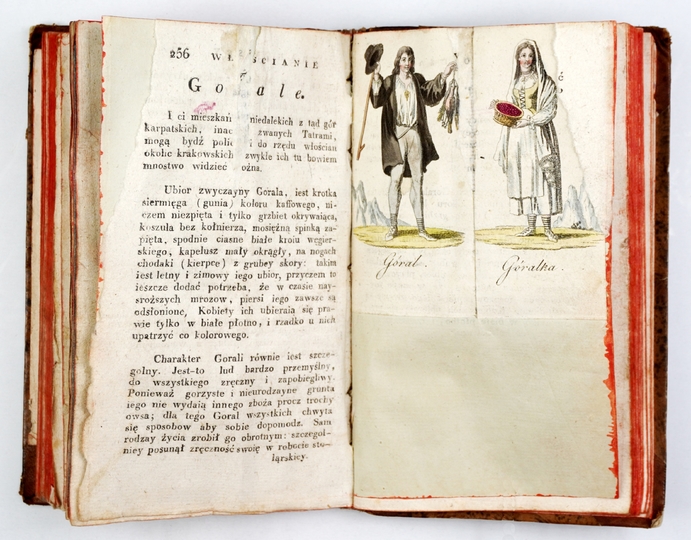 256 WŁ ŚCIANIE
Gorale.
I ci mieszkań niedalekich z tąd gór
karpatskich, inac zwanych Tatrami,
mogą bydź polic i do rzędu włościan
okolic krakowskich zwykle ich tu bowiem
mnostwo widzieć ożna.
Ubior zwyczayny Gorala, iest krotka
siermięga (gunia) koloru kaffowego, ni-
czem niezpięta i tylko grzbiet okrywaiąca,
koszula bez kołnierza, mosiężną spinką za-
pięta, spodnie ciasne białe kroiu węgier-
skiego, kapelusz mały okrągły, na nogach
chodaki (kierpce) z grubey skory: takim
iest letny i zimowy iego ubior, przyczem to
ieszcze dodać potrzeba, że w czasie nay-
sroższych mrozow, piersi iego zawsze są
odsłonione, Kobiety ich ubieraią się pra-
wie tylko w białe płotno, i rzadko u nich
upatrzyć co kolorowego.
Charakter Gorali równie iest szcze-
golny. Jest-to lud bardzo przemyślny,
do wszystkiego zręczny i zapobiegliwy.
Ponieważ gorzyste i nieurodzayne grunta
iego nie wydaią innego zboża procz trochy
owsa; dla tego Goral wszystkich chwyta
się sposobow aby sobie dopomodz. Sam
rodzay życia zrobił go obrotnym: szczegol-
niey posunął zręczność swoię w robocie sto-
larskiey.
Góral.
Góralka.